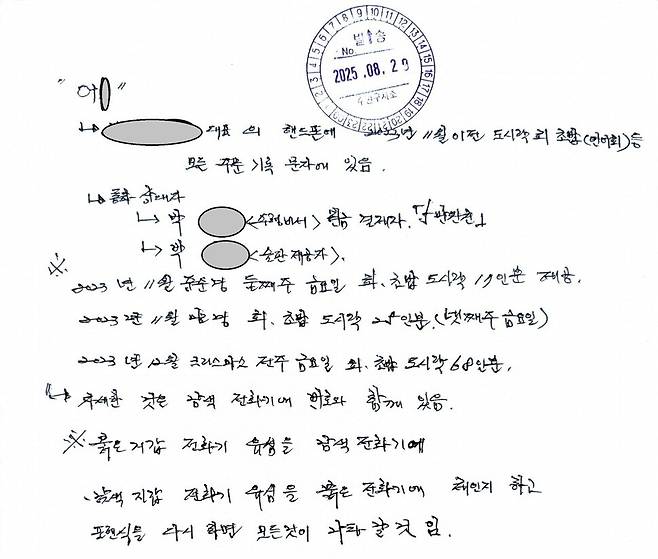 발송
No.
2025.08.29
" 어 "
↳ 대표의 핸드폰에 2023년 11월 이전 도시락 회 초밥(연어회) 등
모든 주문 기록 문자에 있음.
↳ 통화
↳ 박 <수행비서> 현금 결제자.
↳ 박 <술판 제공자>.
※ 2023년 11월 중순경 둘째주 금요일 회. 초밥 도시락 인분 제공.
2023년 11월 말경 회. 초밥 도시락 인분. (넷째주 금요일)
2023년 12월 크리스마스 전주 금요일 회. 초밥 도시락 68인분.
↳ 자세한 것은 검색 전화기에 번호와 함께 있음.
※ 붉은 지갑 전화기 유심을 검색 전화기에
. 검색 지갑 전화기 유심을 붉은 전화기에 체인지 하고
포렌식을 다시 하면 모든것이 나타 날 것 임.